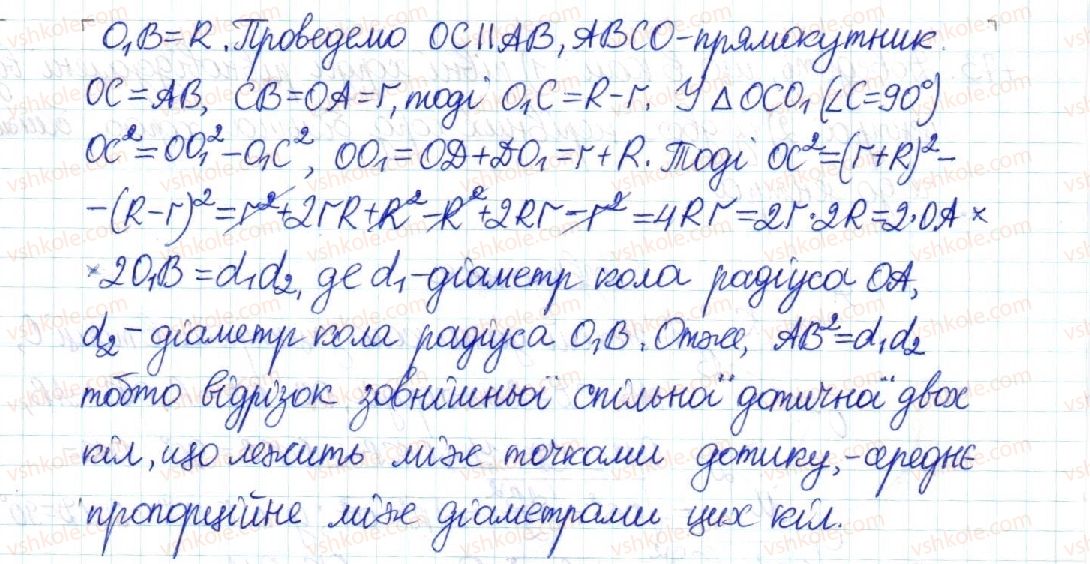 O₁B=R. Проведемо OC||AB, ABCO-прямокутник.
OC=AB, CB=OA=r, тоді O₁C=R-r. У △OCO₁ (∠C=90°)
OC²=OO₁²-O₁C², OO₁=OД+ДO₁=r+R. Тоді OC²=(r+R)²-
-(R-r)²=r²+2rR+R²-R²+2Rr-r²=4Rr=2r·2R=2·OA×
×2O₁B=d₁d₂, де d₁-діаметр кола радіуса OA,
d₂-діаметр кола радіуса O₁B. Отже, AB²=d₁d₂
тобто відрізок зовнішньої спільної дотичної двох
кіл, що лежить між точками дотику,-середнє
пропорційне між діаметрами цих кіл.